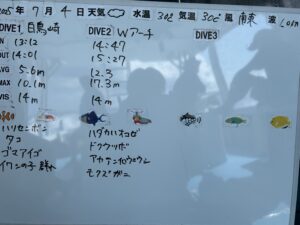 2025年 7月 4日 天気 水温 30℃ 気温 30℃ 風 南東 波 1.0m
DIVE1 目鳥崎 DIVE2 Wアーチ DIVE3
IN 13:12 14:47
OUT 14:01 15:27
AVG 5.6m 12.3
MAX 10.1m 17.3m
VIS 14m 14m
ハリセンボン
タコ
ゴマアイゴ
イワシの子 群れ
ハダカハオコゼ
ドクウツボ
モクズガニ